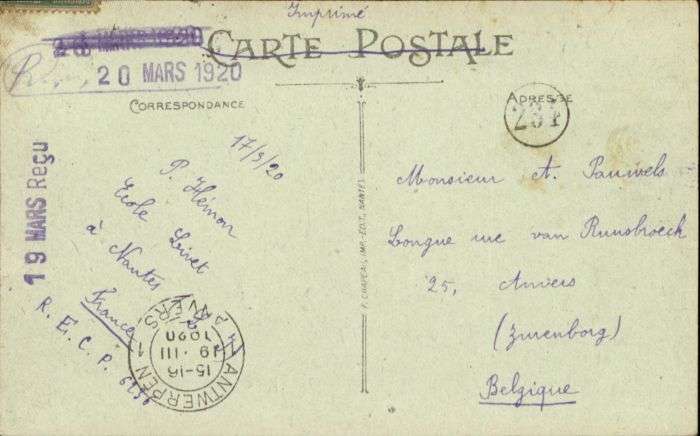 Imprimé
CARTE POSTALE
20 MARS 1920
CORRESPONDANCE
ADRESSE
231
19 MARS Reçu
17/3/20
P. Hémon
Ecole Livet
à Nantes
France
R. E. C. P. 6256
ANTWERPEN 1 ANVERS
15-16
19 III
1920
F. CHAPEAU, IMP.-EDIT, NANTES
Monsieur A. Pauwels
Longue rue van Ruusbroeck
25, Anvers
(Zurenborg)
Belgique